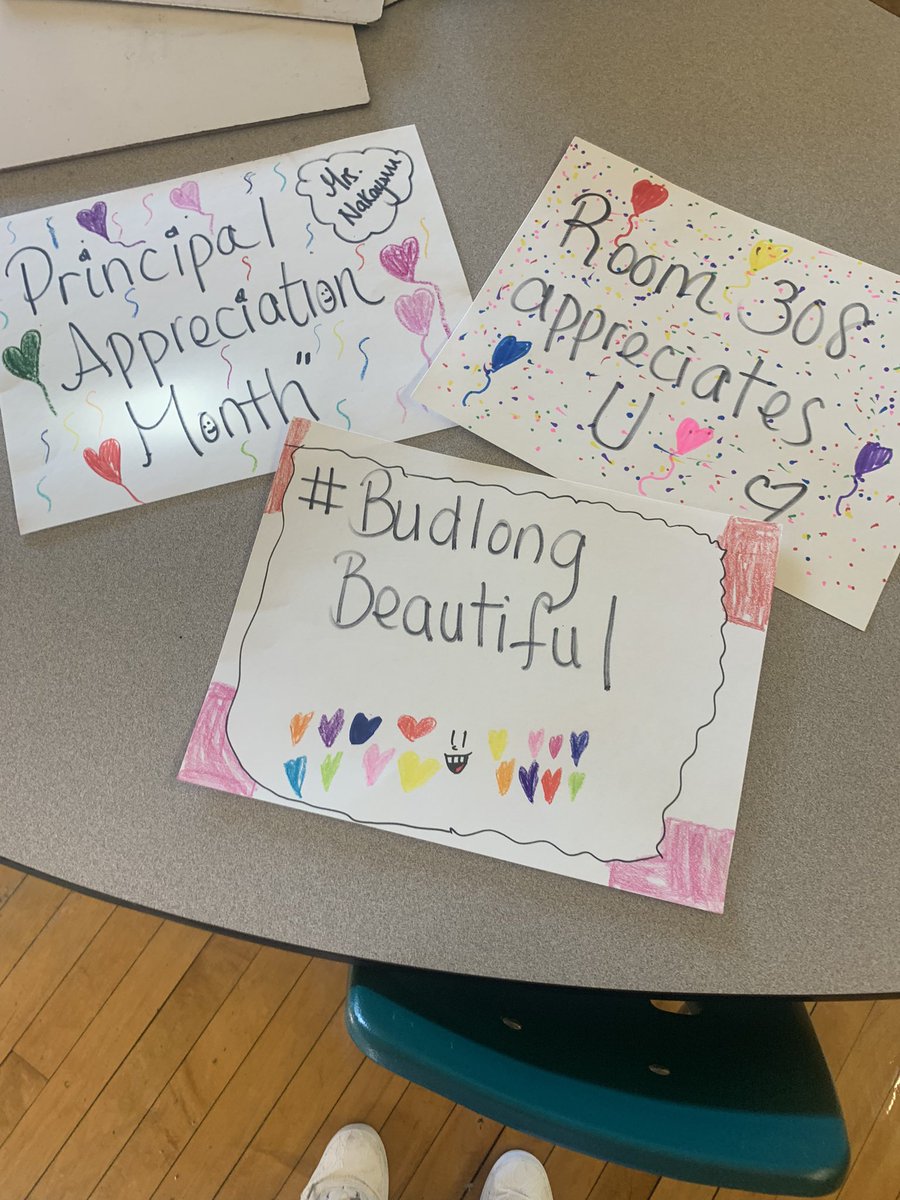 Principal
Appreciation
Month"
Mrs.
Room 308
appreciates
U
#Budlong
Beautiful